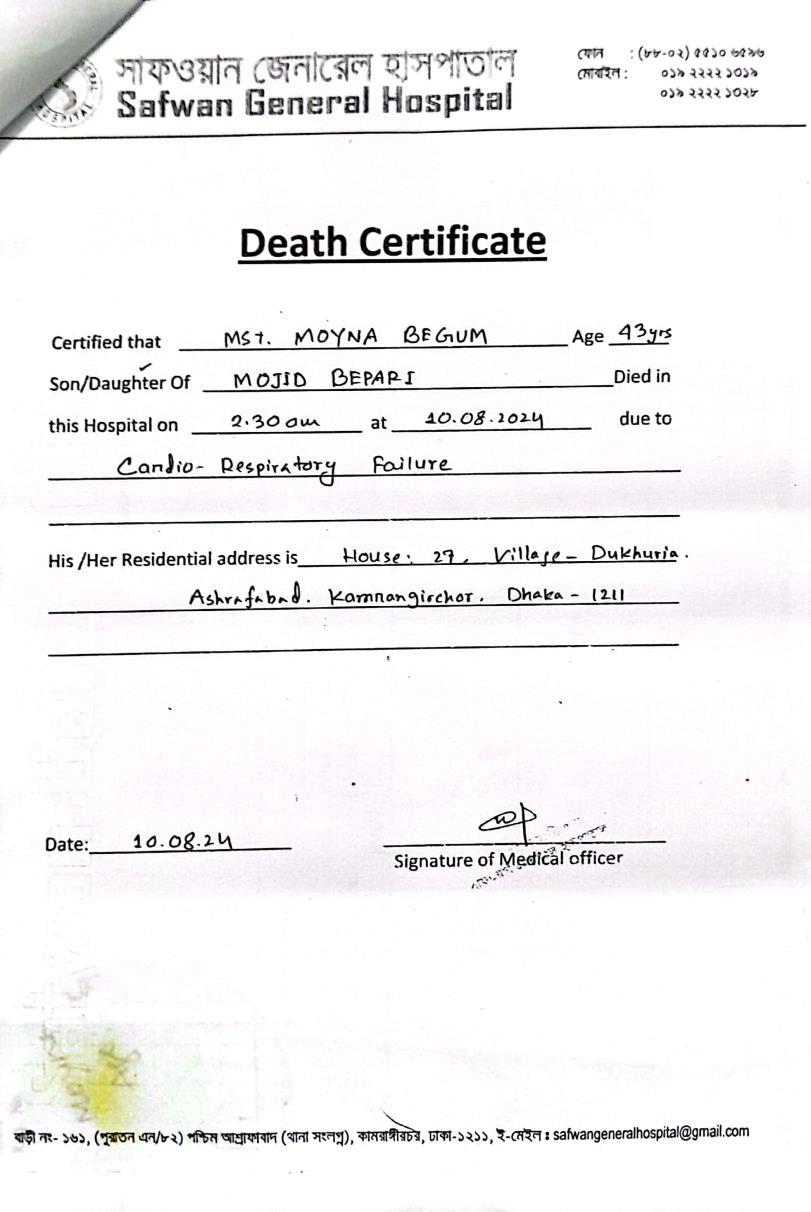 সাফওয়ান জেনারেল হাসপাতাল
Safwan General Hospital
ফোন : (৮৮-০২) ৫৫১০ ৬৫৯৬
মোবাইল : ০১৯ ২২২২ ১০১৯
০১৯ ২২২২ ১০২৮
Death Certificate
Certified that MST. MOYNA BEGUM Age 43yrs
Son/Daughter Of MOJID BEPARI Died in
this Hospital on 2.30 am at 10.08.2024 due to
Cardio- Respiratory Failure
His /Her Residential address is House: 27, Village- Dukhuria.
Ashrafabad. Kamrangirchor. Dhaka - 1211
Date: 10.08.24
Signature of Medical officer
বাড়ী নং- ১৬১, (পুরাতন এন/৮২) পশ্চিম আশ্রাফাবাদ (থানা সংলগ্ন), কামরাঙ্গীরচর, ঢাকা-১২১১, ই-মেইল : safwangeneralhospital@gmail.com